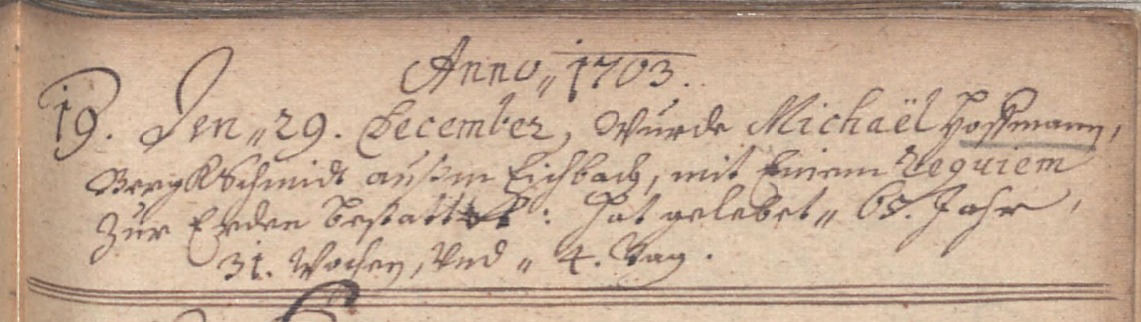 Anno„ 1703.
19. Den„ 29. December, Wurde Michaël Hoffmann,
BergkSchmidt außm Eichbach, mit Einem Requiem
Zur Erden bestattet: hat gelebet„ 65. Jahr,
31. Wochen, Und„ 4. Tag.